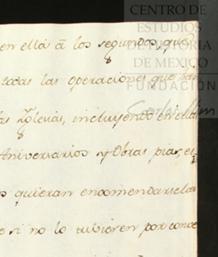 CENTRO DE
ESTUDIOS
DE HISTORIA
DE MEXICO
FUNDACIÓN
Carlos Slim
en ella â los segundos que
todas las operaciones que
as Iglesias, incluyendo en ella
Aniversarios y Obras pias, es
s quieran encomendarsela
e si no lo tuvieren por conve